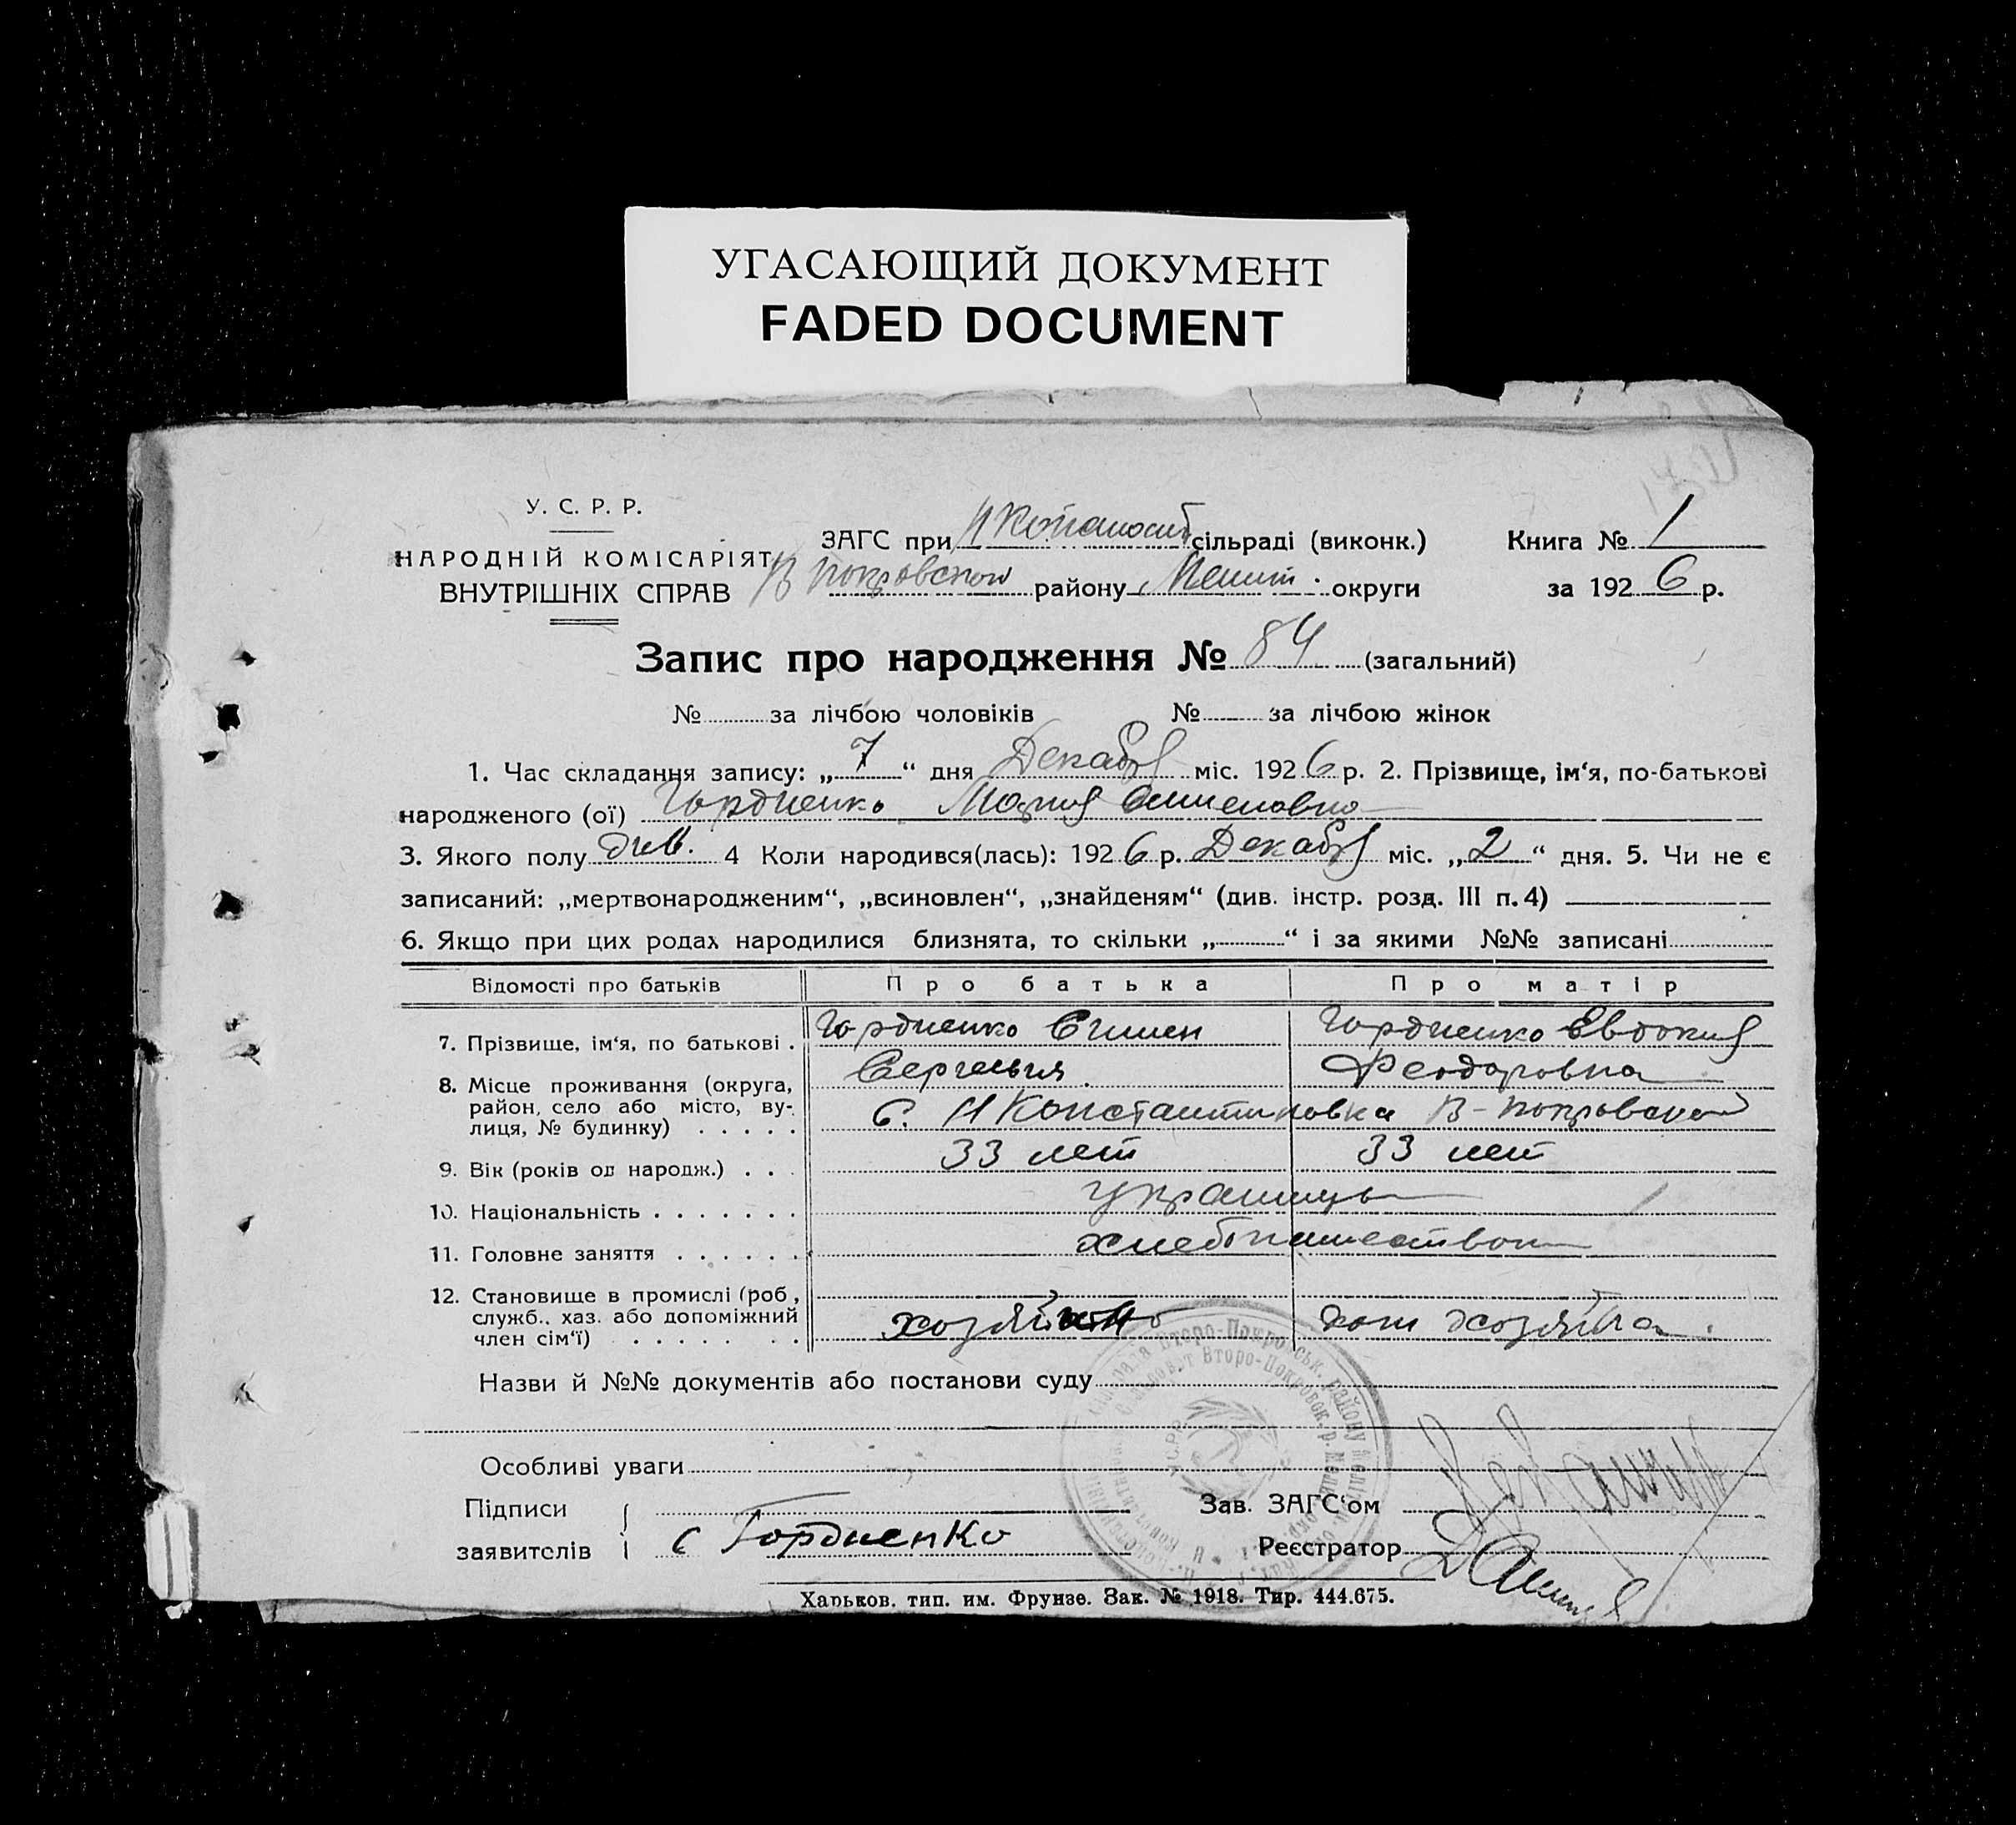 УГАСАЮЩИЙ ДОКУМЕНТ
FADED DOCUMENT
У. С. Р. Р.
НАРОДНІЙ КОМІСАРІЯТ
ВНУТРІШНІХ СПРАВ
ЗАГС при сільраді (виконк.)
В Покровском району Мелит. округи
Книга № 1
за 1926 р.
Запис про народження № 84 (загальний)
№ за лічбою чоловіків № за лічбою жінок
1. Час складання запису: „7“ дня Декабря міс. 1926 р. 2. Прізвище, ім‘я, по-батькові
народженого (ої) Гордиенко Мария Семеновна
3. Якого полу 4 Коли народився(лась): 1926 р. Декабря міс. „2“ дня. 5. Чи не є
записаний: „мертвонародженим“, „всиновлен“, „знайденям“ (див. інстр. розд. III п. 4)
6. Якщо при цих родах народилися близнята, то скільки „ “ і за якими №№ записані
Відомості про батьків Про батька Про матір
7. Прізвище, ім‘я, по батькові . Гордиенко Семен Гордиенко Евдокия
Сергеевич Феодоровна
8. Місце проживання (округа,
район, село або місто, ву-
лиця, № будинку) . . . . . с. Н Константиновка В-Покровской
9. Вік (років од народж.) . . . 33 лет 33 лет
10. Національність . . . . . . . украинцы
11. Головне заняття . . . . . . хлебопашеством
12. Становище в промислі (роб.,
служб., хаз. або допоміжний
член сім‘ї) . . . . . . . хозяйка
Назви й №№ документів або постанови суду
Особливі уваги
Підписи
заявителів С Гордиенко
Зав. ЗАГС‘ом
Реєстратор
Харьков. тип. им. Фрунзе. Зак. № 1918. Тир. 444.675.